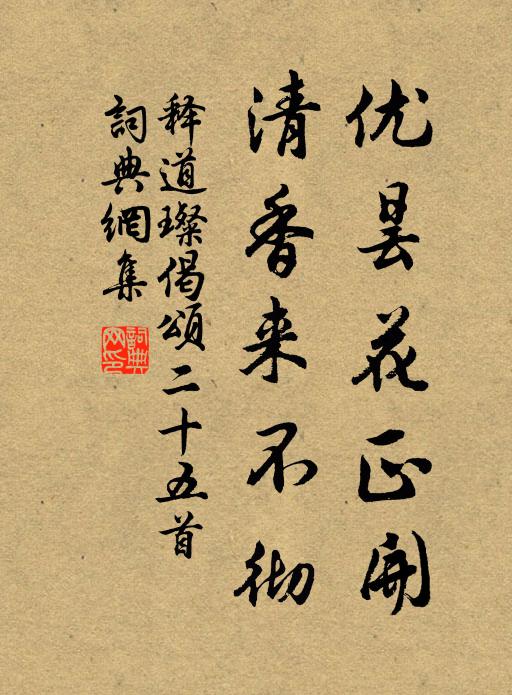 优昙花正开
清香来不彻
释道璨偈頌二十五首
詞典網集
詞典网印